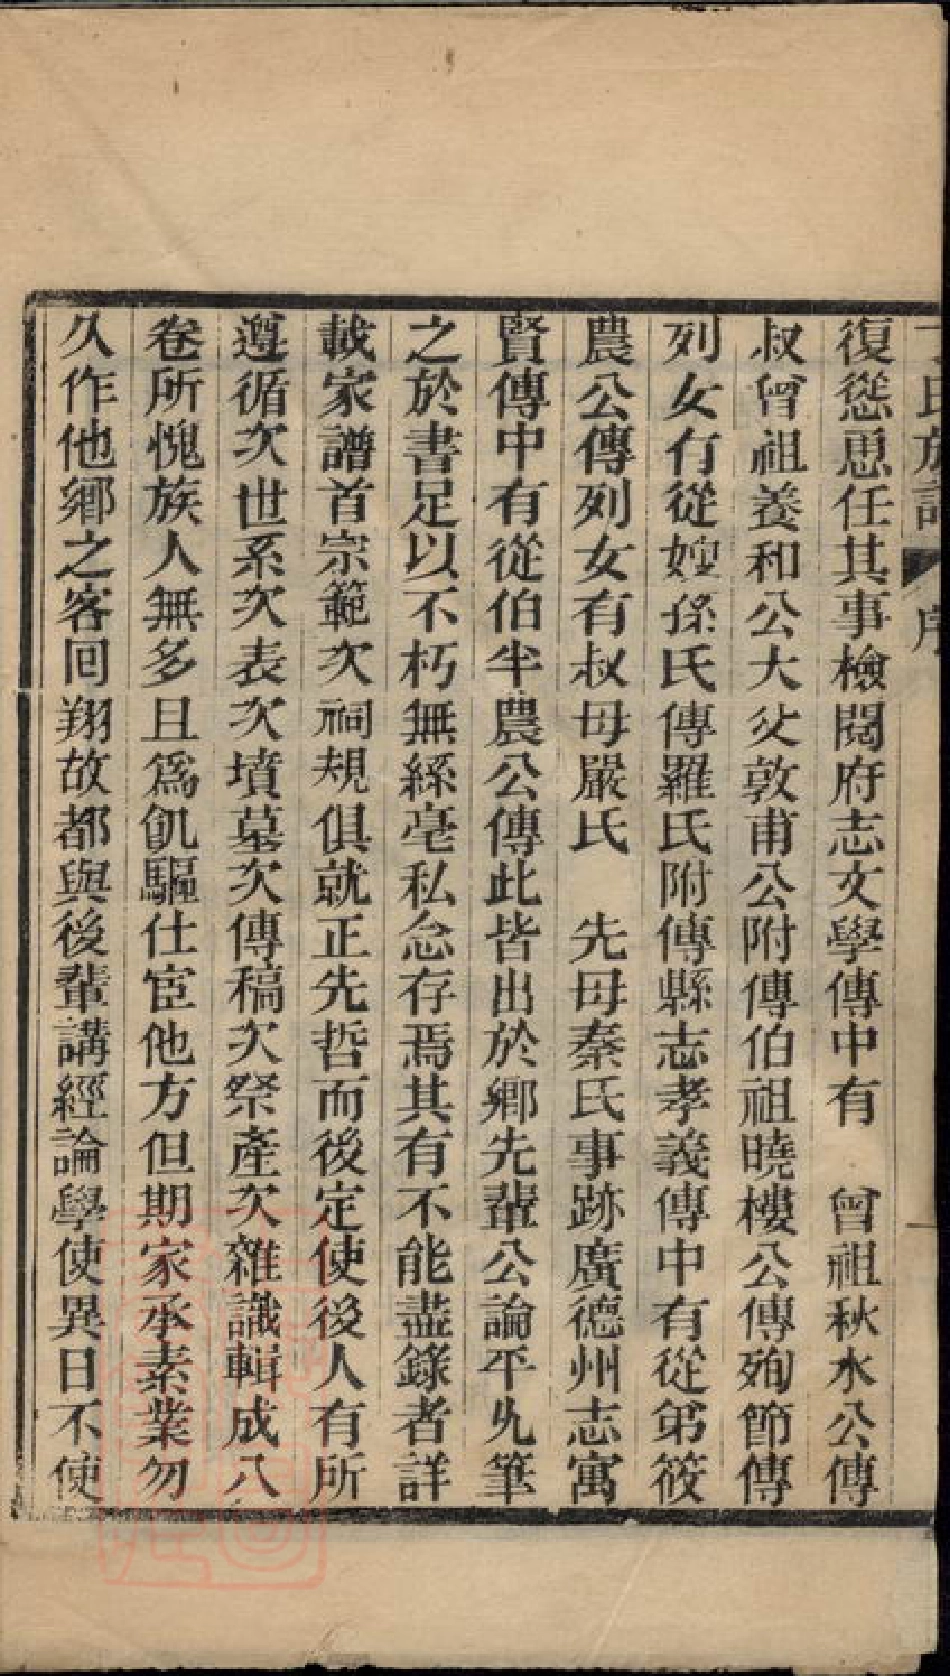 丁氏族譜 序
復慫恿任其事檢閱府志文學傳中有 曾祖秋水公傳
叔曾祖養和公大父敦甫公附傳伯祖曉樓公傳殉節傳
列女有從嫂孫氏傳羅氏附傳縣志孝義傳中有從弟筱
農公傳列女有叔母嚴氏 先母秦氏事跡廣德州志寓
賢傳中有從伯半農公傳此皆出於鄉先輩公論平允筆
之於書足以不朽無絲毫私念存焉其有不能盡錄者詳
載家譜首宗範次祠規俱就正先哲而後定使後人有所
遵循次世系次表次墳墓次傳稿次祭產次雜識輯成八
卷所愧族人無多且為飢驅仕宦他方但期家承素業勿
久作他鄉之客回翔故都與後輩講經論學使異日不使